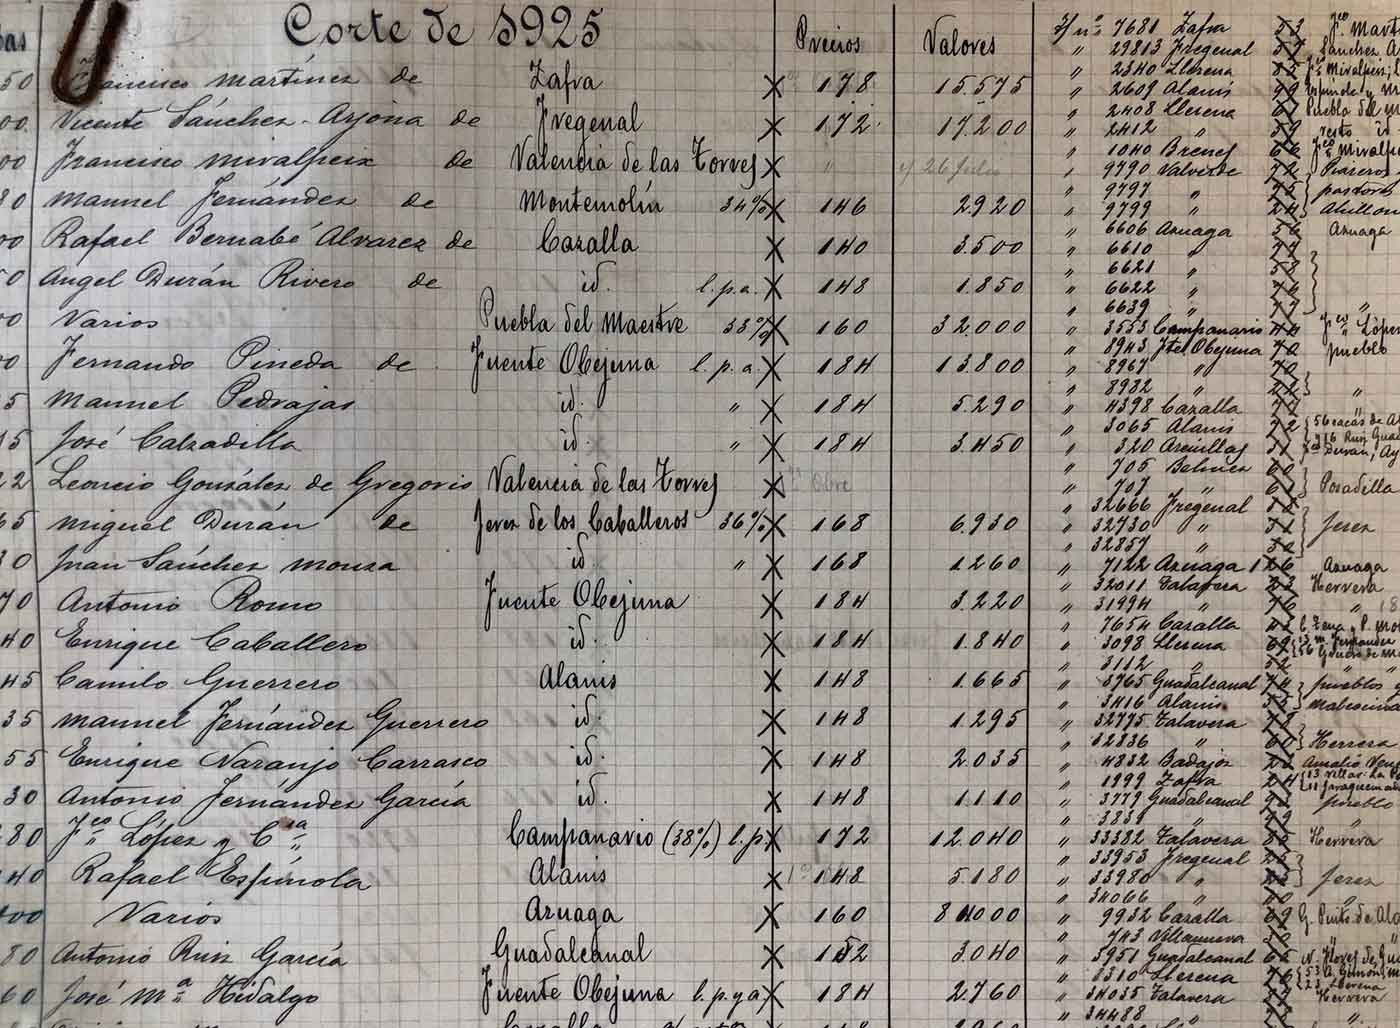 Corte de 1925
bas Precios Valores
50 Francisco Martínez de Zafra X 178 15.575
00 Vicente Sánchez-Arjona de Fregenal X 172 17.200
00 Francisco Miralpeix de Valencia de las Torres X " 26 Julio
80 Manuel Fernández de Montemolín 34% X 146 2.920
00 Rafael Bernabé Alvarez de Cazalla X 140 3.500
50 Angel Durán Rivero de id. l.p.a. X 148 1.850
00 Varios Puebla del Maestre 33% X 160 32.000
00 Fernando Pineda de Fuente Obejuna l.p.a. X 184 13.800
5 Manuel Pedrajas id. " X 184 5.290
15 José Calzadilla id. " X 184 3.450
22 Leoncio González de Gregorio Valencia de las Torres X
65 Miguel Durán de Jerez de los Caballeros 36% X 168 6.930
30 Juan Sánchez Monza id. " X 168 1.260
70 Antonio Romo Fuente Obejuna X 184 3.220
40 Enrique Caballero id. X 184 1.840
45 Camilo Guerrero Alanis X 148 1.665
35 Manuel Fernández Guerrero id. X 148 1.295
55 Enrique Naranjo Carrasco id. X 148 2.035
30 Antonio Fernández García id. X 148 1.110
280 Fco López y Cia Campanario (38%) l.p. X 172 12.040
140 Rafael Espínola Alanis X 148 5.180
400 Varios Azuaga X 160 000
80 Antonio Ruiz García Guadalcanal X 152 3.040
60 José Ma Hidalgo Fuente Obejuna l.p.y a X 184 2.760
s/ nº 7681 Zafra 53
" 29813 Fregenal 57 Sánchez A
" 2340 Llerena Miralpeix
" 2609 Alanis 99
" 2408 Llerena Puebla del M
" 2412 " 39 resto id
" 1040 Brenes 66 Miralpei
" 9790 Valverde 72
" 9797 " 75
" 9799 " 24
" 6606 Azuaga 56 Azuaga
" 6610 " 77
" 6621 " 58
" 6622 "
" 6639 " 77 "
" 3553 Campanario Fco López
" 8943 Fte Obejuna 70 pueblo
" 8967 " 70
" 8982 " "
" 4398 Cazalla 77
" 3065 Alanis 72
" 320 Arcillas 31 Durán
" 705 Belmez 60
" 707 " Posadilla
" 32666 Fregenal
" 32730 " 31 Jerez
" 32857 "
" 7122 Azuaga 126 Azuaga
" 32011 Talavera 23 Herrera
" 31994 " 76 "
" 7654 Cazalla
" 3098 Llerena 69
" 3112 " 52
" 3765 Guadalcanal 74 pueblos
" 3416 Alanis
" 32775 Talavera
" 32836 " 60 Herrera
" 4832 Badajoz
" 1999 Zafra 24
" 3779 Guadalcanal pueblo
" 3839 "
" 33382 Talavera 80 Herrera
" 33953 Fregenal 25
" 33980 " Jerez
" 34066 "
" 9932 Cazalla 69
" 743 Villanueva
" 3951 Guadalcanal 66
" 3310 Llerena 76
" 34035 Talavera Herrera
" 34488 " "